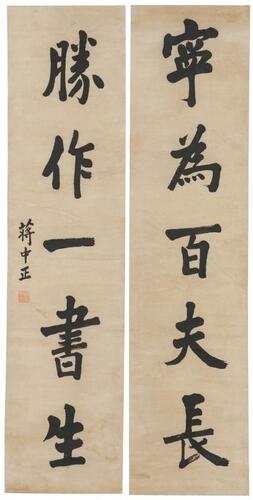 寧為百夫長
勝作一書生
蔣中正